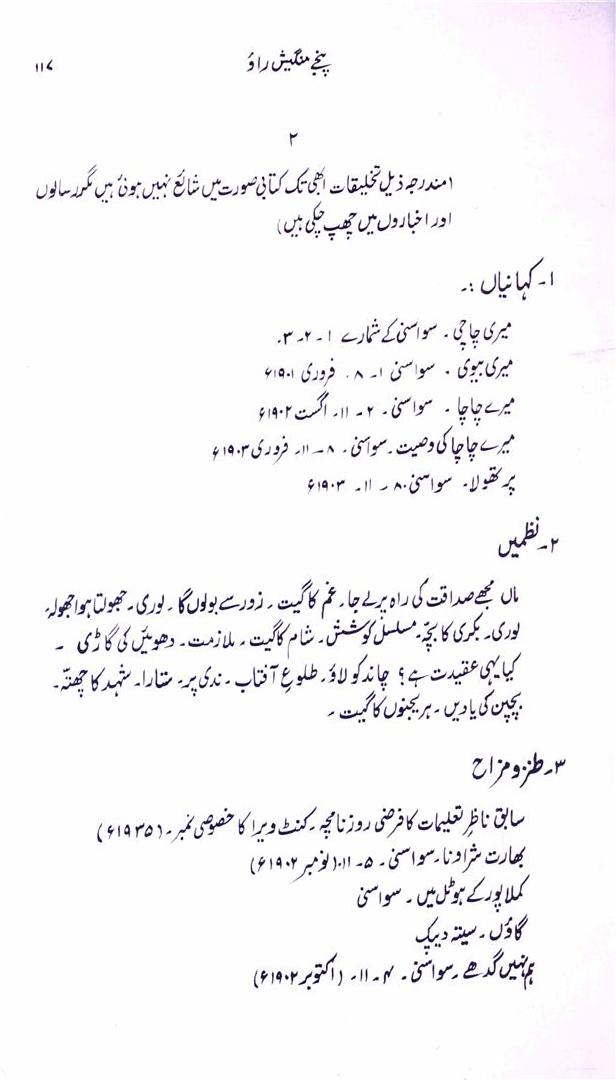 پنجے منگیش راؤ ۱۱۷
۲
(مندرجہ ذیل تخلیقات ابھی تک کتابی صورت میں شائع نہیں ہوئی ہیں مگر رسالوں
اور اخباروں میں چھپ چکی ہیں)
۱۔ کہانیاں :۔
میری چاچی ۔ سواسنی کے شمارے ۱ ۔ ۲ ۔ ۳۔
میری بیوی ۔ سواسنی ۱۔ ۸ ۔ فروری ۱۹۰۱ء
میرے چاچا ۔ سواسنی ۔ ۲ ۔ ۱۱۔ اگست ۱۹۰۲ء
میرے چاچا کی وصیت ۔ سواسنی ۔ ۸ ۔ ۱۱۔ فروری ۱۹۰۳ء
پرتھولا۔ سواسنی ۔ ۸ ۔ ۱۱۔ ۱۹۰۳ء
۲۔ نظمیں
ماں مجھے صداقت کی راہ پر لے جا ۔ غم کا گیت ۔ زور سے بولوں گا ۔ لوری ۔ جھولتا ہوا جھولہ
لوری ۔ بکری کا بچّہ ۔ مسلسل کوشش ۔ شام کا گیت ۔ ملازمت ۔ دھوئیں کی گاڑی ۔
کیا یہی عقیدت ہے؟ چاند کو لاؤ ۔ طلوعِ آفتاب ۔ ندی پر ۔ ستارا ۔ شہد کا چھتّہ ۔
بچپن کی یادیں ۔ ہریجنوں کا گیت ۔
۳۔ طنز و مزاح
سابق ناظرِ تعلیمات کا فرضی روزنامچہ ۔ کنٹ ویرا کا خصوصی نمبر ۔ (۱۹۳۵ء)
بھارت شراونا ۔ سواسنی ۔ ۵ ۔ ۱۱۔ (نومبر ۱۹۰۲ء)
کملاپور کے ہوٹل میں ۔ سواسنی
گاؤں ۔ سیتہ دیپک
ہم نہیں گدھے ۔ سواسنی ۔ ۴ ۔ ۱۱۔ (اکتوبر ۱۹۰۲ء)